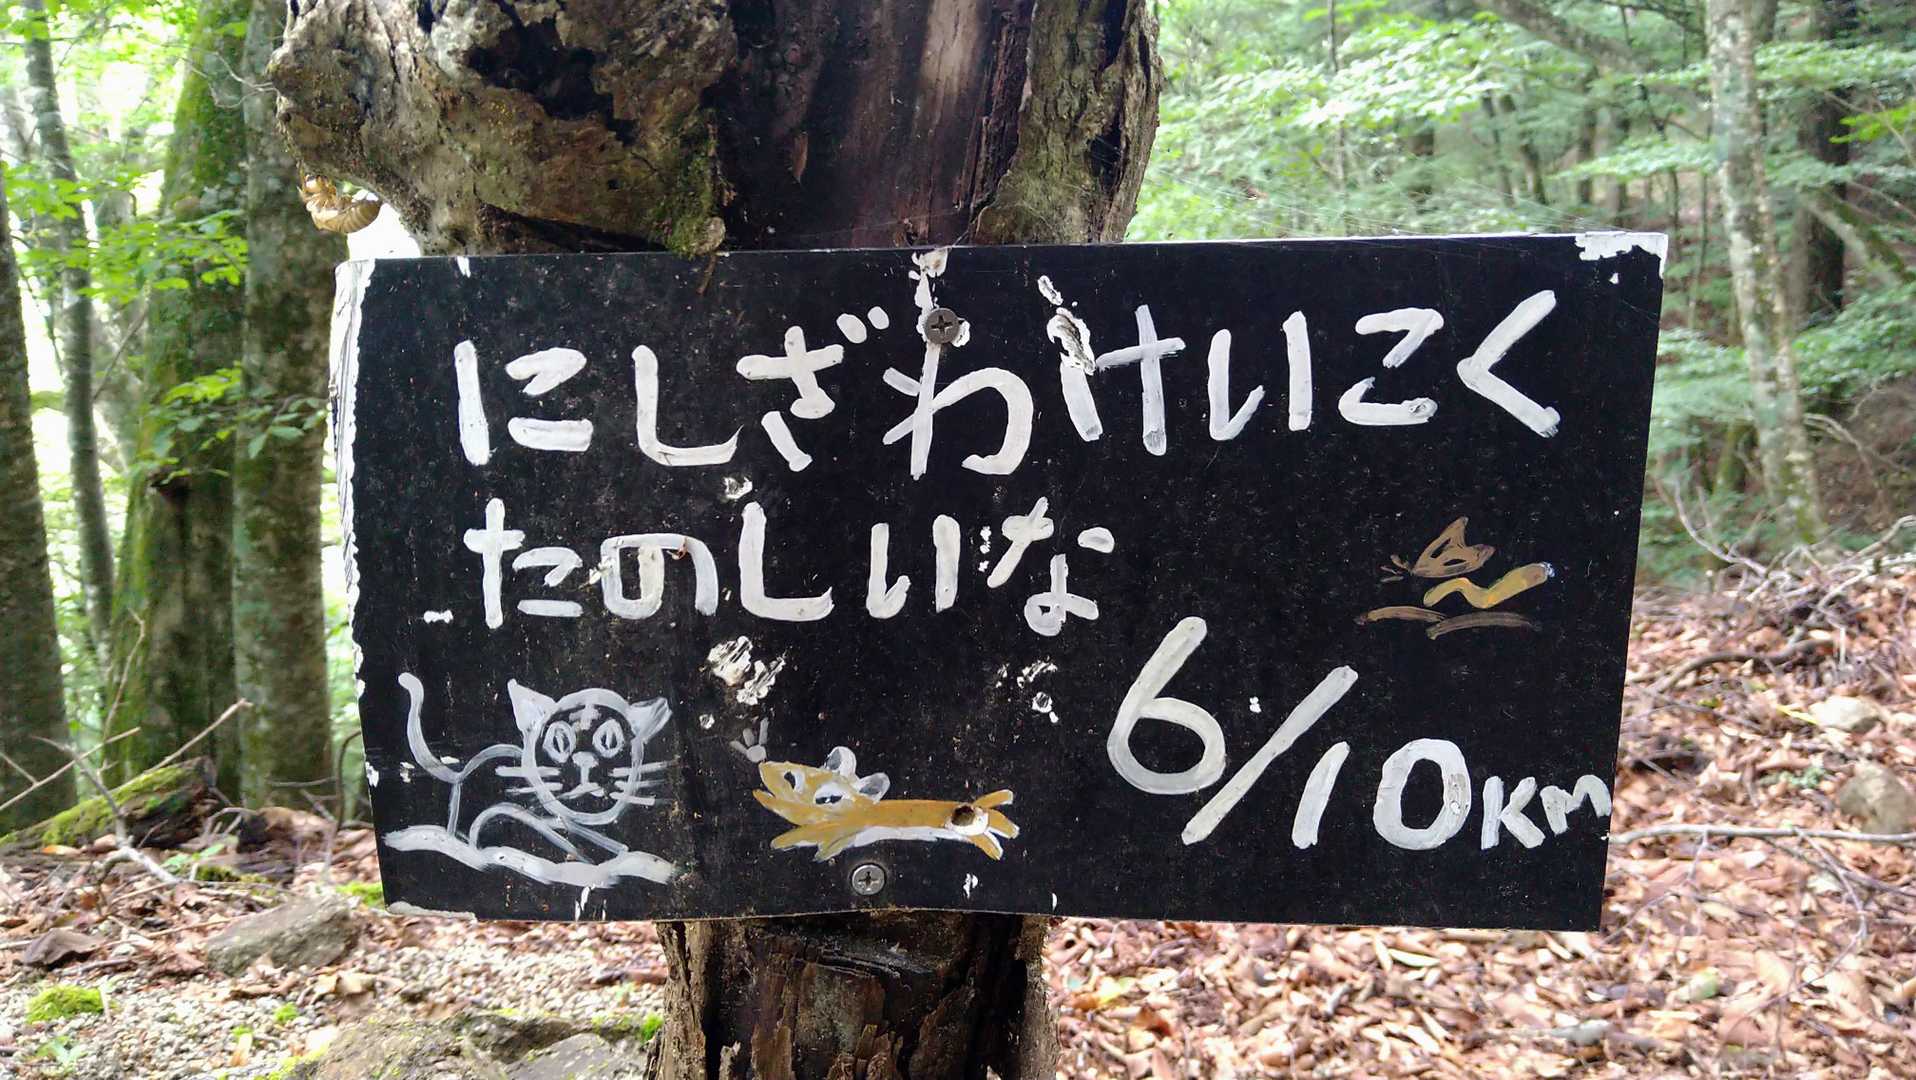 にしざわけいこく
たのしいな
6/10KM